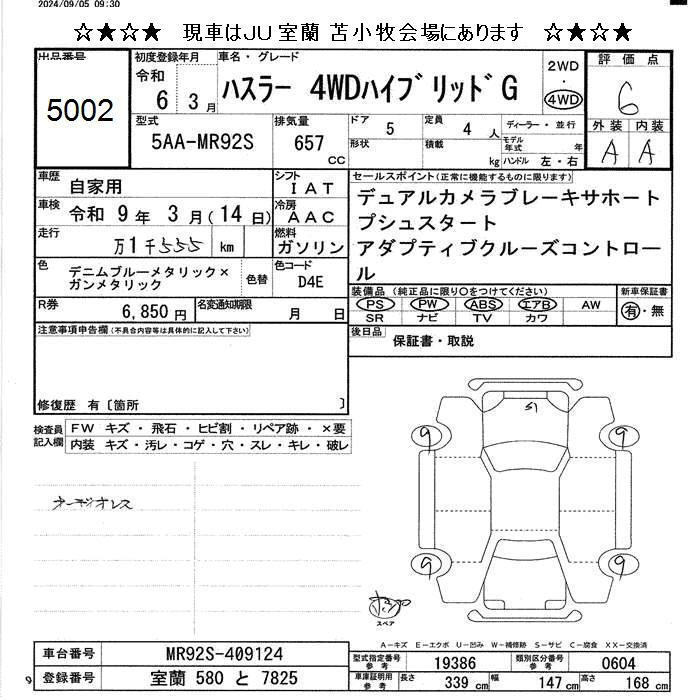 2024/09/05 09:30
☆★☆★ 現車はJU室蘭 苫小牧会場にあります ☆★☆★
出品番号
5002
初度登録年月
令和
6 3月
車名・グレード
ハスラー 4WDハイブリッドG
2WD
・
4WD
評価点
6
外装 内装
A A
型式
5AA-MR92S
排気量
657
CC
ドア 5
定員 4 人
形状
積載 kg
ディーラー・並行
モデル年式 年
ハンドル 左・右
車歴
自家用
シフト
IAT
車検
令和 9年 3月(14日)
冷房
AAC
走行
万1千555 km
燃料
ガソリン
色
デニムブルーメタリック×
ガンメタリック
色替
色コード
D4E
R券
6,850円
名変通知期限
月 日
セールスポイント(正常に機能するものに限ります)
デュアルカメラブレーキサホート
プシュスタート
アダプティブクルーズコントロー
ル
装備品(純正品に限り○をつけてください)
PS PW ABS エアB AW
SR ナビ TV カワ
新車保証書
有・無
後日品
保証書・取説
注意事項申告欄(不具合内容等は具体的に記入して下さい)
修復歴 有〔箇所 〕
検査員
記入欄
FW キズ・飛石・ヒビ割・リペア跡・×要
内装 キズ・汚レ・コゲ・穴・スレ・キレ・破レ
オーディオレス
S1
9 9
9 9
スペア
A-キズ E-エクボ U-凹み W-補修跡 S-サビ C-腐食 XX-交換済
車台番号
MR92S-409124
登録番号
室蘭 580 と 7825
型式指定番号
参考
19386
類別区分番号
参考
0604
車庫証明用
参考
長さ 339 cm
幅 147 cm
高さ 168 cm
9